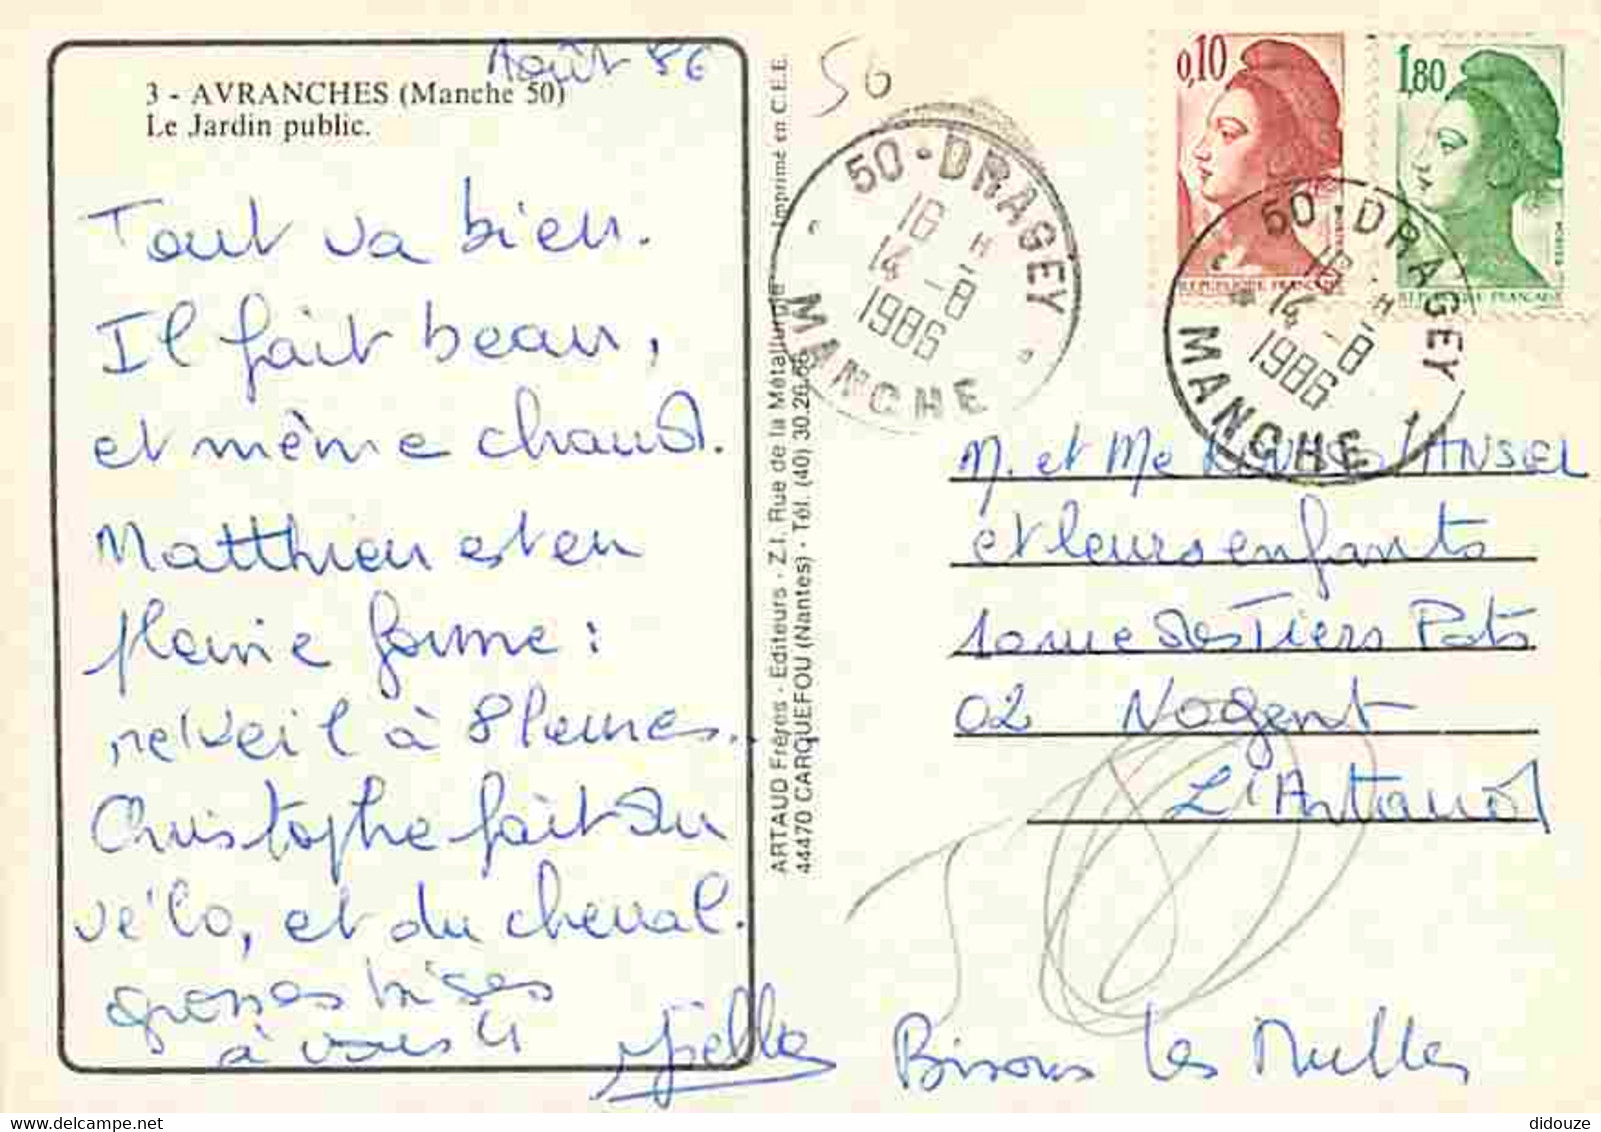 Août 86
3 - AVRANCHES (Manche 50)
Le Jardin public.
Tout va bien.
Il fait beau,
et même chaud.
Matthieu est en
pleine forme :
réveil à 8 heures.
Christophe fait du
vélo, et du cheval.
grosses bises
à vous 4
Joëlle
ARTAUD Frères - Editeurs - Z.I. Rue de la Métallurgie Imprimé en C.E.E.
44470 CARQUEFOU (Nantes) - Tél. (40) 30.26.66
56
50 - DRAGEY
16 H
14 -8
1986
MANCHE
0,10
REPUBLIQUE FRANÇAISE
1,80
REPUBLIQUE FRANÇAISE
50 - DRAGEY
16 H
14 -8
1986
MANCHE
M. et Me
et leurs enfants
10 rue des Tiers Pots
02 Nogent
L'Artaud
Bisous Les
didouze